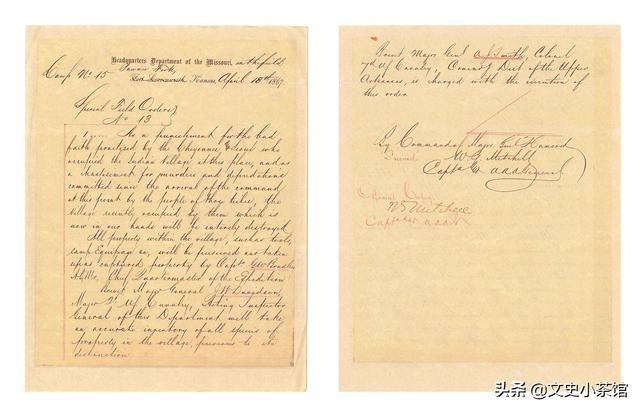 Headquarters Department of the Missouri, in the field
Camp No 15 Pawnee Fork,
Fort Leavenworth, Kansas, April 18th 1867
Special Field Orders
No 13
As a punishment for the bad
faith practiced by the Cheyennes & Sioux who
occupied the Indian village at this place, and as
a chastisement for murders and depredations
committed since the arrival of the command
at this point by the people of these tribes, the
village recently occupied by them which is
now in our hands will be entirely destroyed.
All property within the village, such as tools,
camp equipage &c, will be preserved and taken
up as captured property by Captn G W Bradley
A.Q.M., Chief Quartermaster of the Expedition
Brevet Major General J W Davidson,
Major 2d U.S. Cavalry, Acting Inspector
General of this Department will take
an accurate inventory of all species of
property in the village, previous to its
destruction
Brevet Major Genl A J Smith, Colonel
7th U.S. Cavalry, Comdg Dist of the Upper
Arkansas, is charged with the execution of
this order
By Command of Major Genl Hancock
Signed W G Mitchell
Captn & A.A.A. General
Official Copy
W G Mitchell
Captn & A.A.A.G.
头条 @文史小茶馆